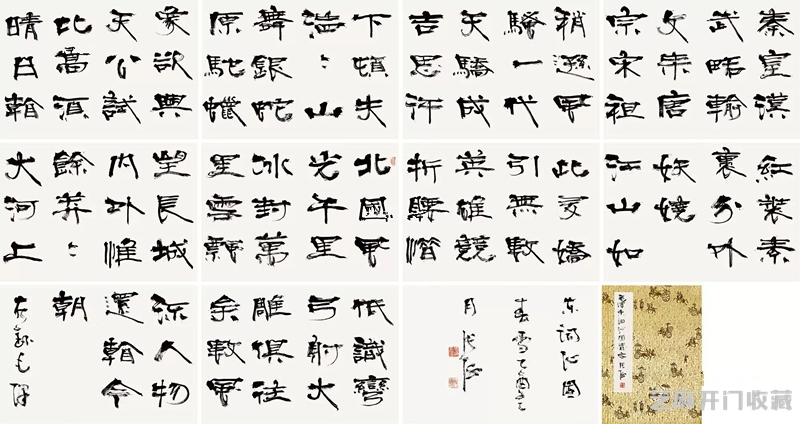 象欲與
天公試
比高須
晴日看
下頓失
滔〻山
舞銀蛇
原馳蠟
稍遜風
騷一代
天驕成
吉思汗
秦皇漢
武略輸
文采唐
宗宋祖
望長城
內外惟
餘莽〻
大河上
北國風
光千里
冰封萬
里雪飄
此多嬌
引無數
英雄競
折腰惜
紅裝素
裹分外
妖嬈
江山如
流人物
還看今
朝
右錄毛澤
祇識彎
弓射大
雕俱往
矣數風
東詞沁園
春雪乙酉年三
月
毛澤東詞沁園春雪
开门收藏